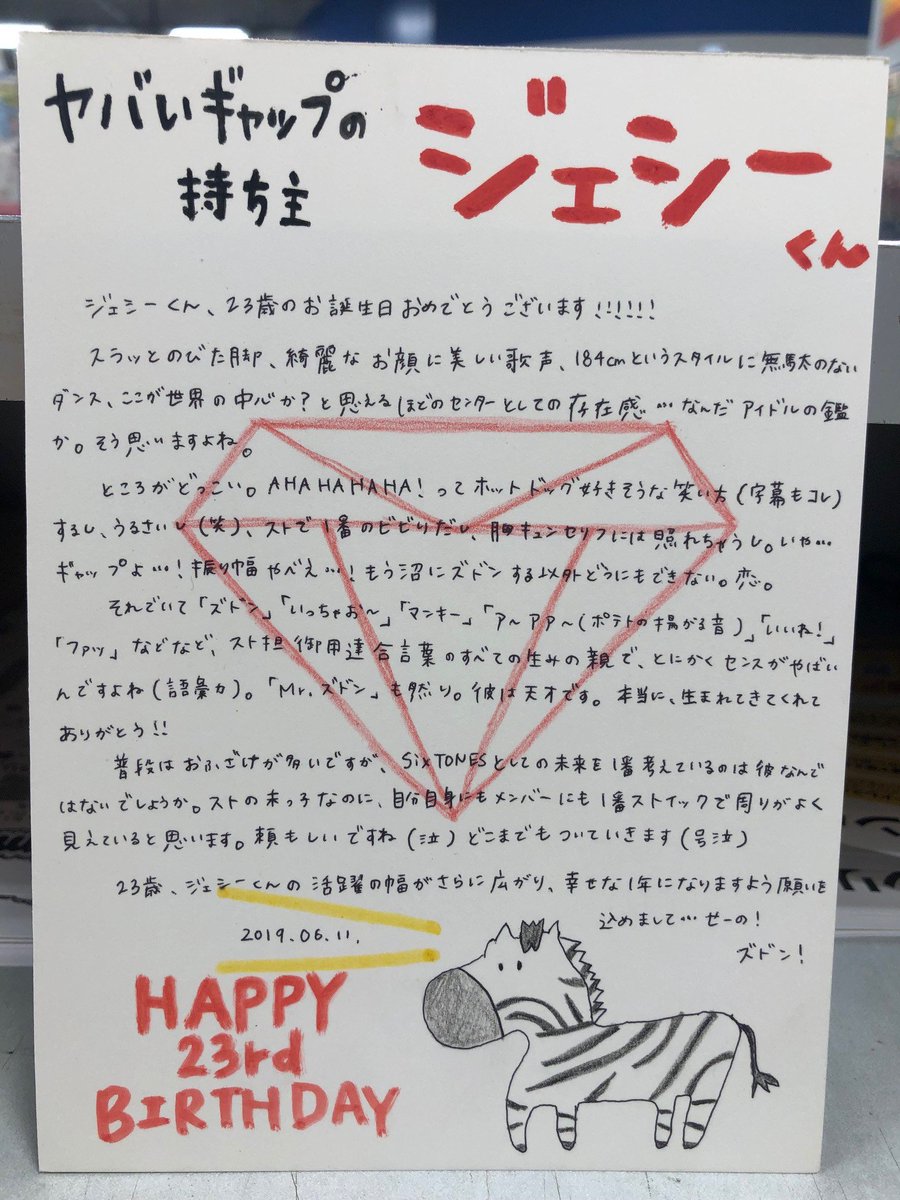 ヤバいギャップの
持ち主
ジェシー
くん
ジェシーくん、23歳のお誕生日おめでとうございます!!!!!!
スラッとのびた脚、綺麗なお顔に美しい歌声、184cmというスタイルに無駄のない
ダンス、ここが世界の中心か?と思えるほどのセンターとしての存在感…なんだアイドルの鑑
か。そう思いますよね。
ところがどっこい。AHAHAHAHA!ってホットドッグ好きそうな笑い方(字幕もコレ)
するし、うるさいし(笑)、ストで1番のビビりだし、胸キュンセリフには照れちゃうし。いや…
ギャップよ…!振り幅やべえ…!もう沼にズドンする以外どうにもできない。恋。
それでいて「ズドン」「いっちゃお〜」「マンキー」「ア〜アア〜(ポテトの揚がる音)」「いいね!」
「ファッ」などなど、スト担御用達合言葉のすべての生みの親で、とにかくセンスがやばい
んですよね(語彙力)。「Mr.ズドン」も然り。彼は天才です。本当に、生まれてきてくれて
ありがとう!!
普段はおふざけが多いですが、SixTONESとしての未来を1番考えているのは彼なんで
はないでしょうか。ストの末っ子なのに、自分自身にもメンバーにも1番ストイックで周りがよく
見えていると思います。頼もしいですね(泣)どこまでもついていきます(号泣)
23歳、ジェシーくんの活躍の幅がさらに広がり、幸せな1年になりますよう願いを
込めまして…せーの!
ズドン!
2019.06.11.
HAPPY
23rd
BIRTHDAY